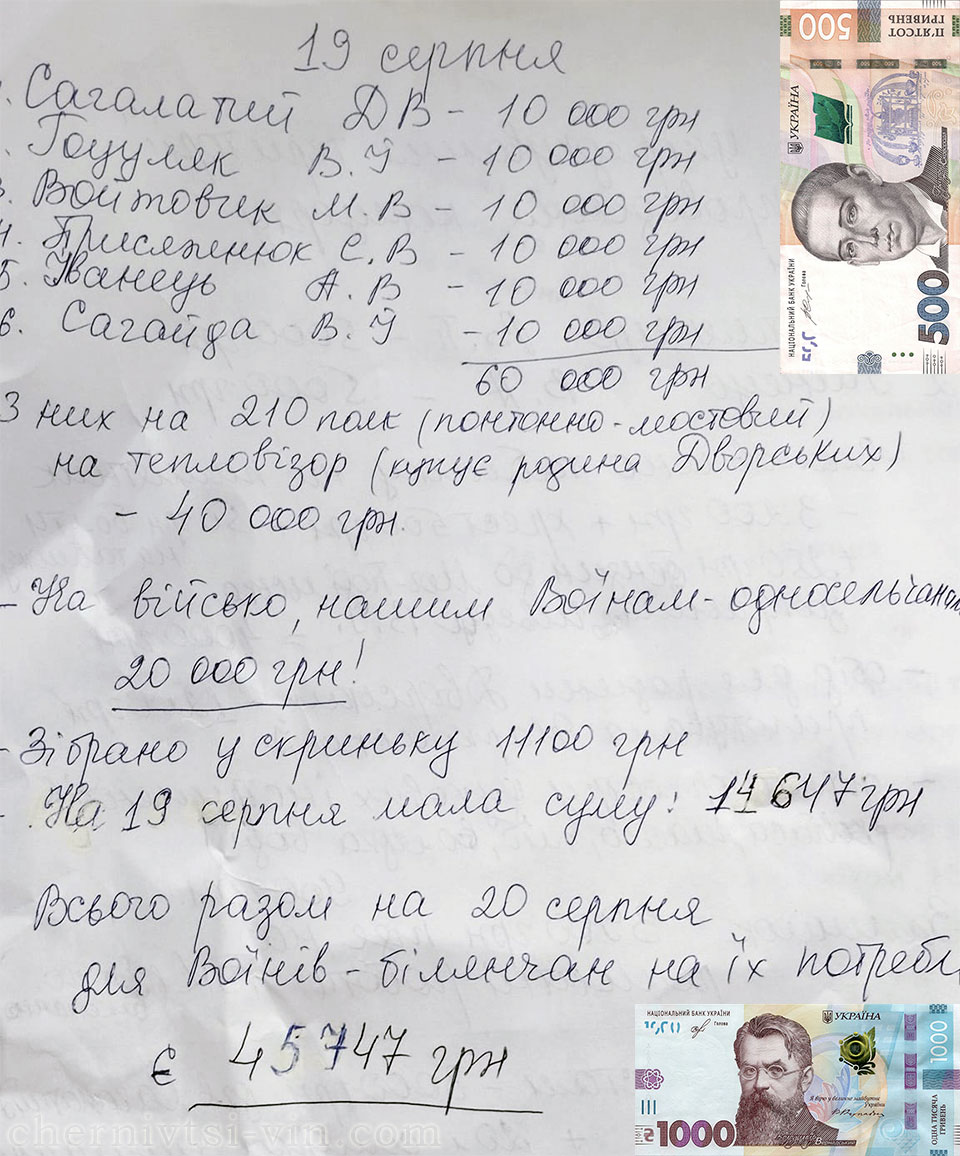 19 серпня
. Сагалатий ДВ - 10 000 грн
. Гоцуляк В.Й - 10 000 грн
3. Войтовчик М.В - 10 000 грн
4. Присяжнюк С.В - 10 000 грн
5. Іванець А.В - 10 000 грн
6. Сагайда В.Й - 10 000 грн
60 000 грн
З них на 210 полк (понтонно-мостовий)
на тепловізор (купує родина Дворських)
- 40 000 грн.
- На військо, нашим Воїнам-односельчанам
20 000 грн!
- Зібрано у скриньку 11100 грн
- На 19 серпня мала суму: 14647 грн
Всього разом на 20 серпня
для Воїнів-білянчан на їх потреби
є 45747 грн
500
П'ЯТСОТ
ГРИВЕНЬ
УКРАЇНА
НАЦІОНАЛЬНИЙ БАНК УКРАЇНИ
Голова
500
НАЦІОНАЛЬНИЙ БАНК УКРАЇНИ
Голова
УКРАЇНА
1000
Я вірю у велике майбутнє
України
1000
ОДНА ТИСЯЧА
ГРИВЕНЬ
chernivtsi-vin.com